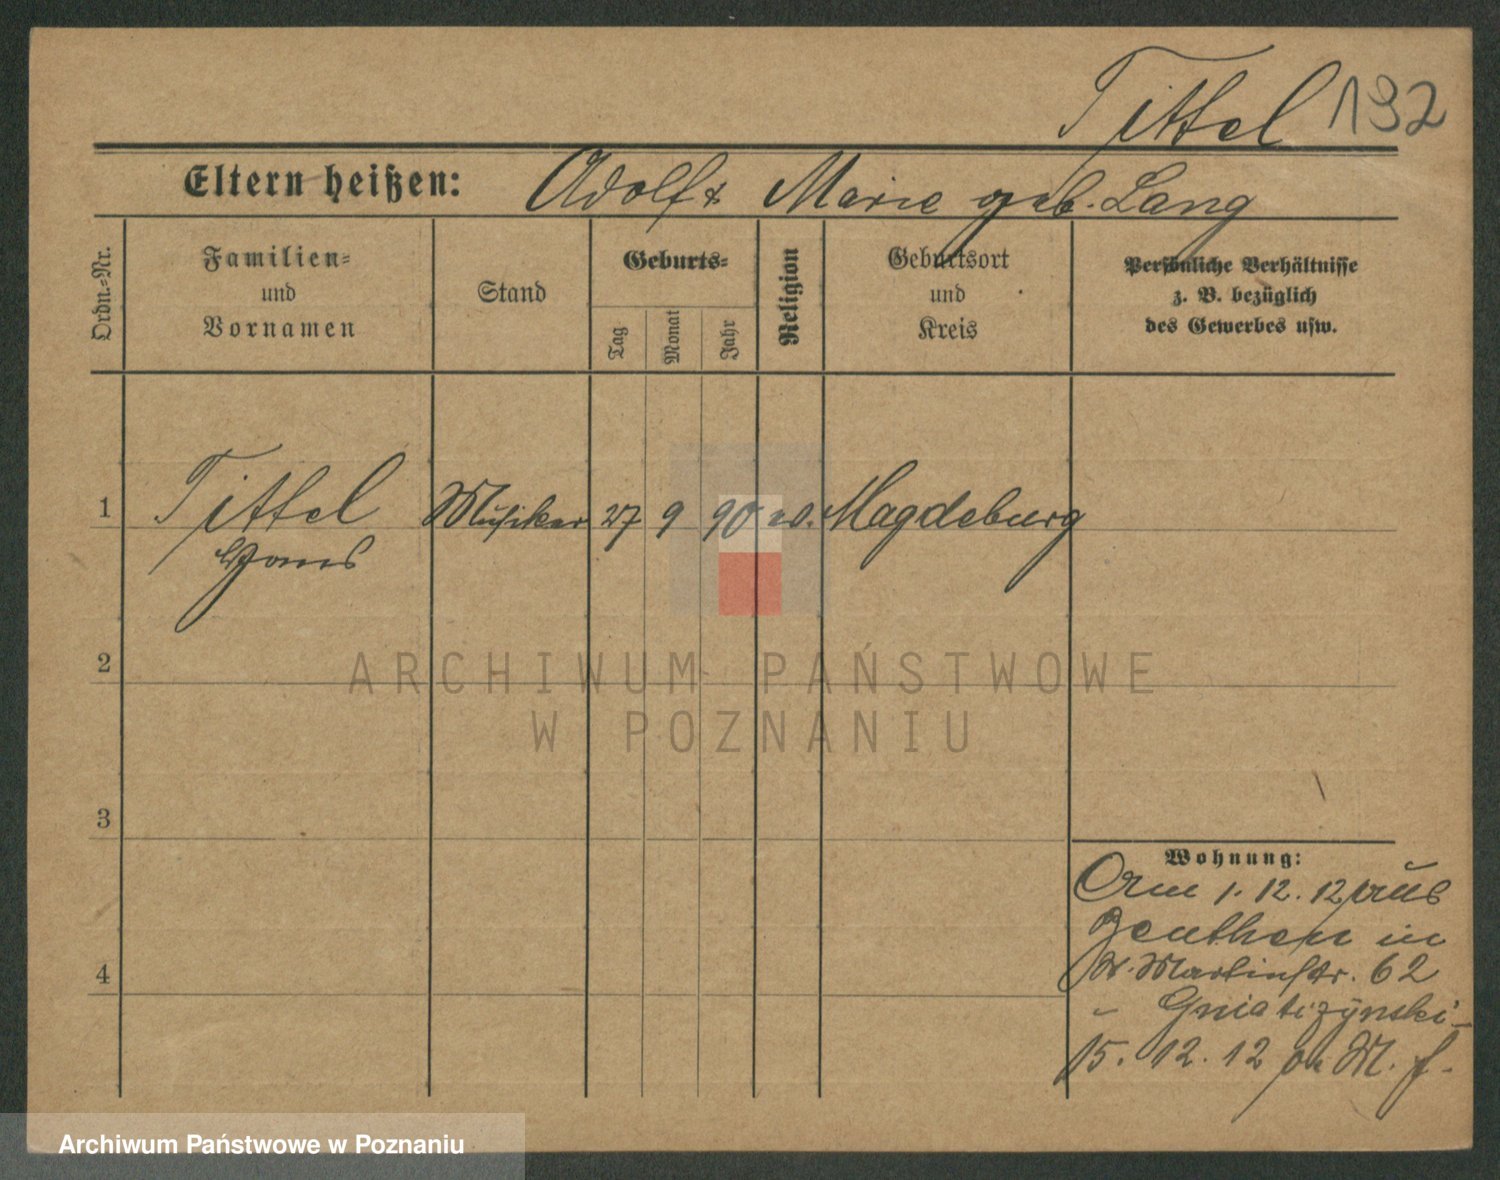 Tittel 192
Eltern heißen: Adolf & Marie geb. Lang
Ordn.-Nr.
Familien-
und
Vornamen
Stand
Geburts-
Tag
Monat
Jahr
Religion
Geburtsort
und
Kreis
Persönliche Verhältnisse
z. B. bezüglich
des Gewerbes usw.
1 Tittel Musiker 27 9 90 ev. Magdeburg
Hans
2
ARCHIWUM PAŃSTWOWE
W POZNANIU
3
Wohnung:
Am 1. 12. 12 aus
Beuthen in
St. Martinstr. 62
4
- Gniatczynski -
15. 12. 12 M. f.
Archiwum Państwowe w Poznaniu